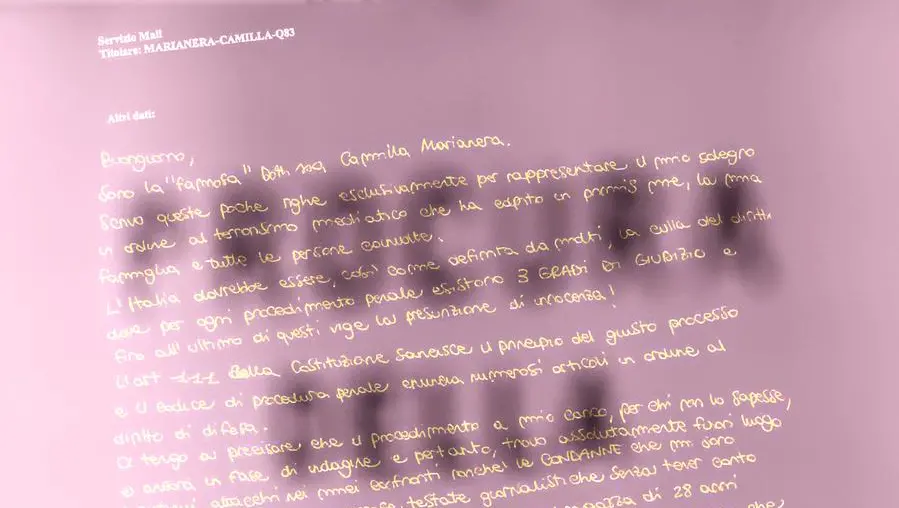 Servizio Mail
Titolare: MARIANERA-CAMILLA-Q83
Altri dati:
Buongiorno,
Sono la "famosa" Dott.ssa Camilla Marianera.
Scrivo queste poche righe esclusivamente per rappresentare il mio sdegno
in ordine al terrorismo mediatico che ha colpito in primis me, la mia
famiglia e tutte le persone coinvolte.
L'Italia dovrebbe essere, così come definita da molti, la culla del diritto
dove per ogni procedimento penale esistono 3 GRADI DI GIUDIZIO e
fino all'ultimo di questi vige la presunzione di innocenza!
L'art 111 della Costituzione sancisce il principio del giusto processo
e il codice di procedura penale enuncia numerosi articoli in ordine al
diritto di difesa.
Ci tengo a precisare che il procedimento a mio carico, per chi non lo sapesse,
è ancora in fase di indagine e pertanto, trovo assolutamente fuori luogo
attacchi nei miei confronti nonché le CONDANNE che mi sono
testate giornalistiche senza tener conto
ragazza di 28 anni
che